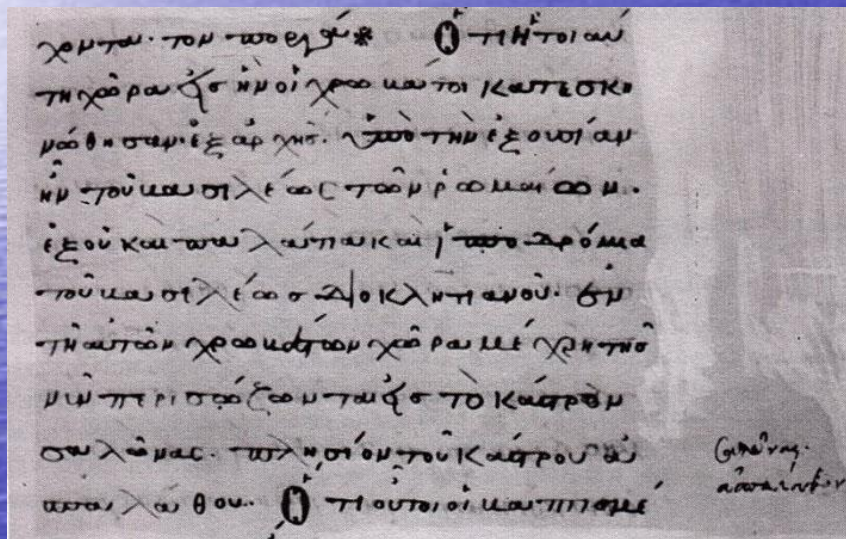 χονται. τὸν Ὅτι ἡ τοιαύ
τη χώρα εἰς ἣν οἱ χρωβάτοι κατεσκη
νώθησαν· ἐξ ἀρχῆς. ὑπὸ τὴν ἐξουσίαν
ἦν τοῦ βασιλέως τῶν ῥωμαίων.
ἐξ οὗ καὶ παλάτια καὶ ἱπποδρόμια
τοῦ βασιλέως Διοκλητιανοῦ. ἐν
τῇ αὐτῶν χρωβάτων χώρα μέχρι τῆς
νῦν περισώζονται εἰς τὸ κάστρον
σαλῶνας. πλησίον τοῦ κάστρου ἀσ
παλάθου. Ὅτι οὗτοι οἱ βαπτισμέ